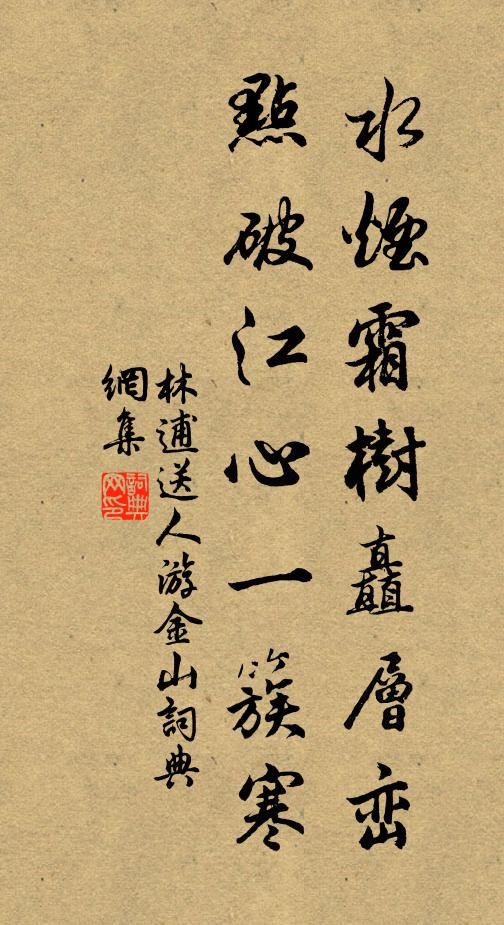 水煙霜樹矗層峦
點破江心一簇寒
林逋送人游金山詞典
網集
詞典网印